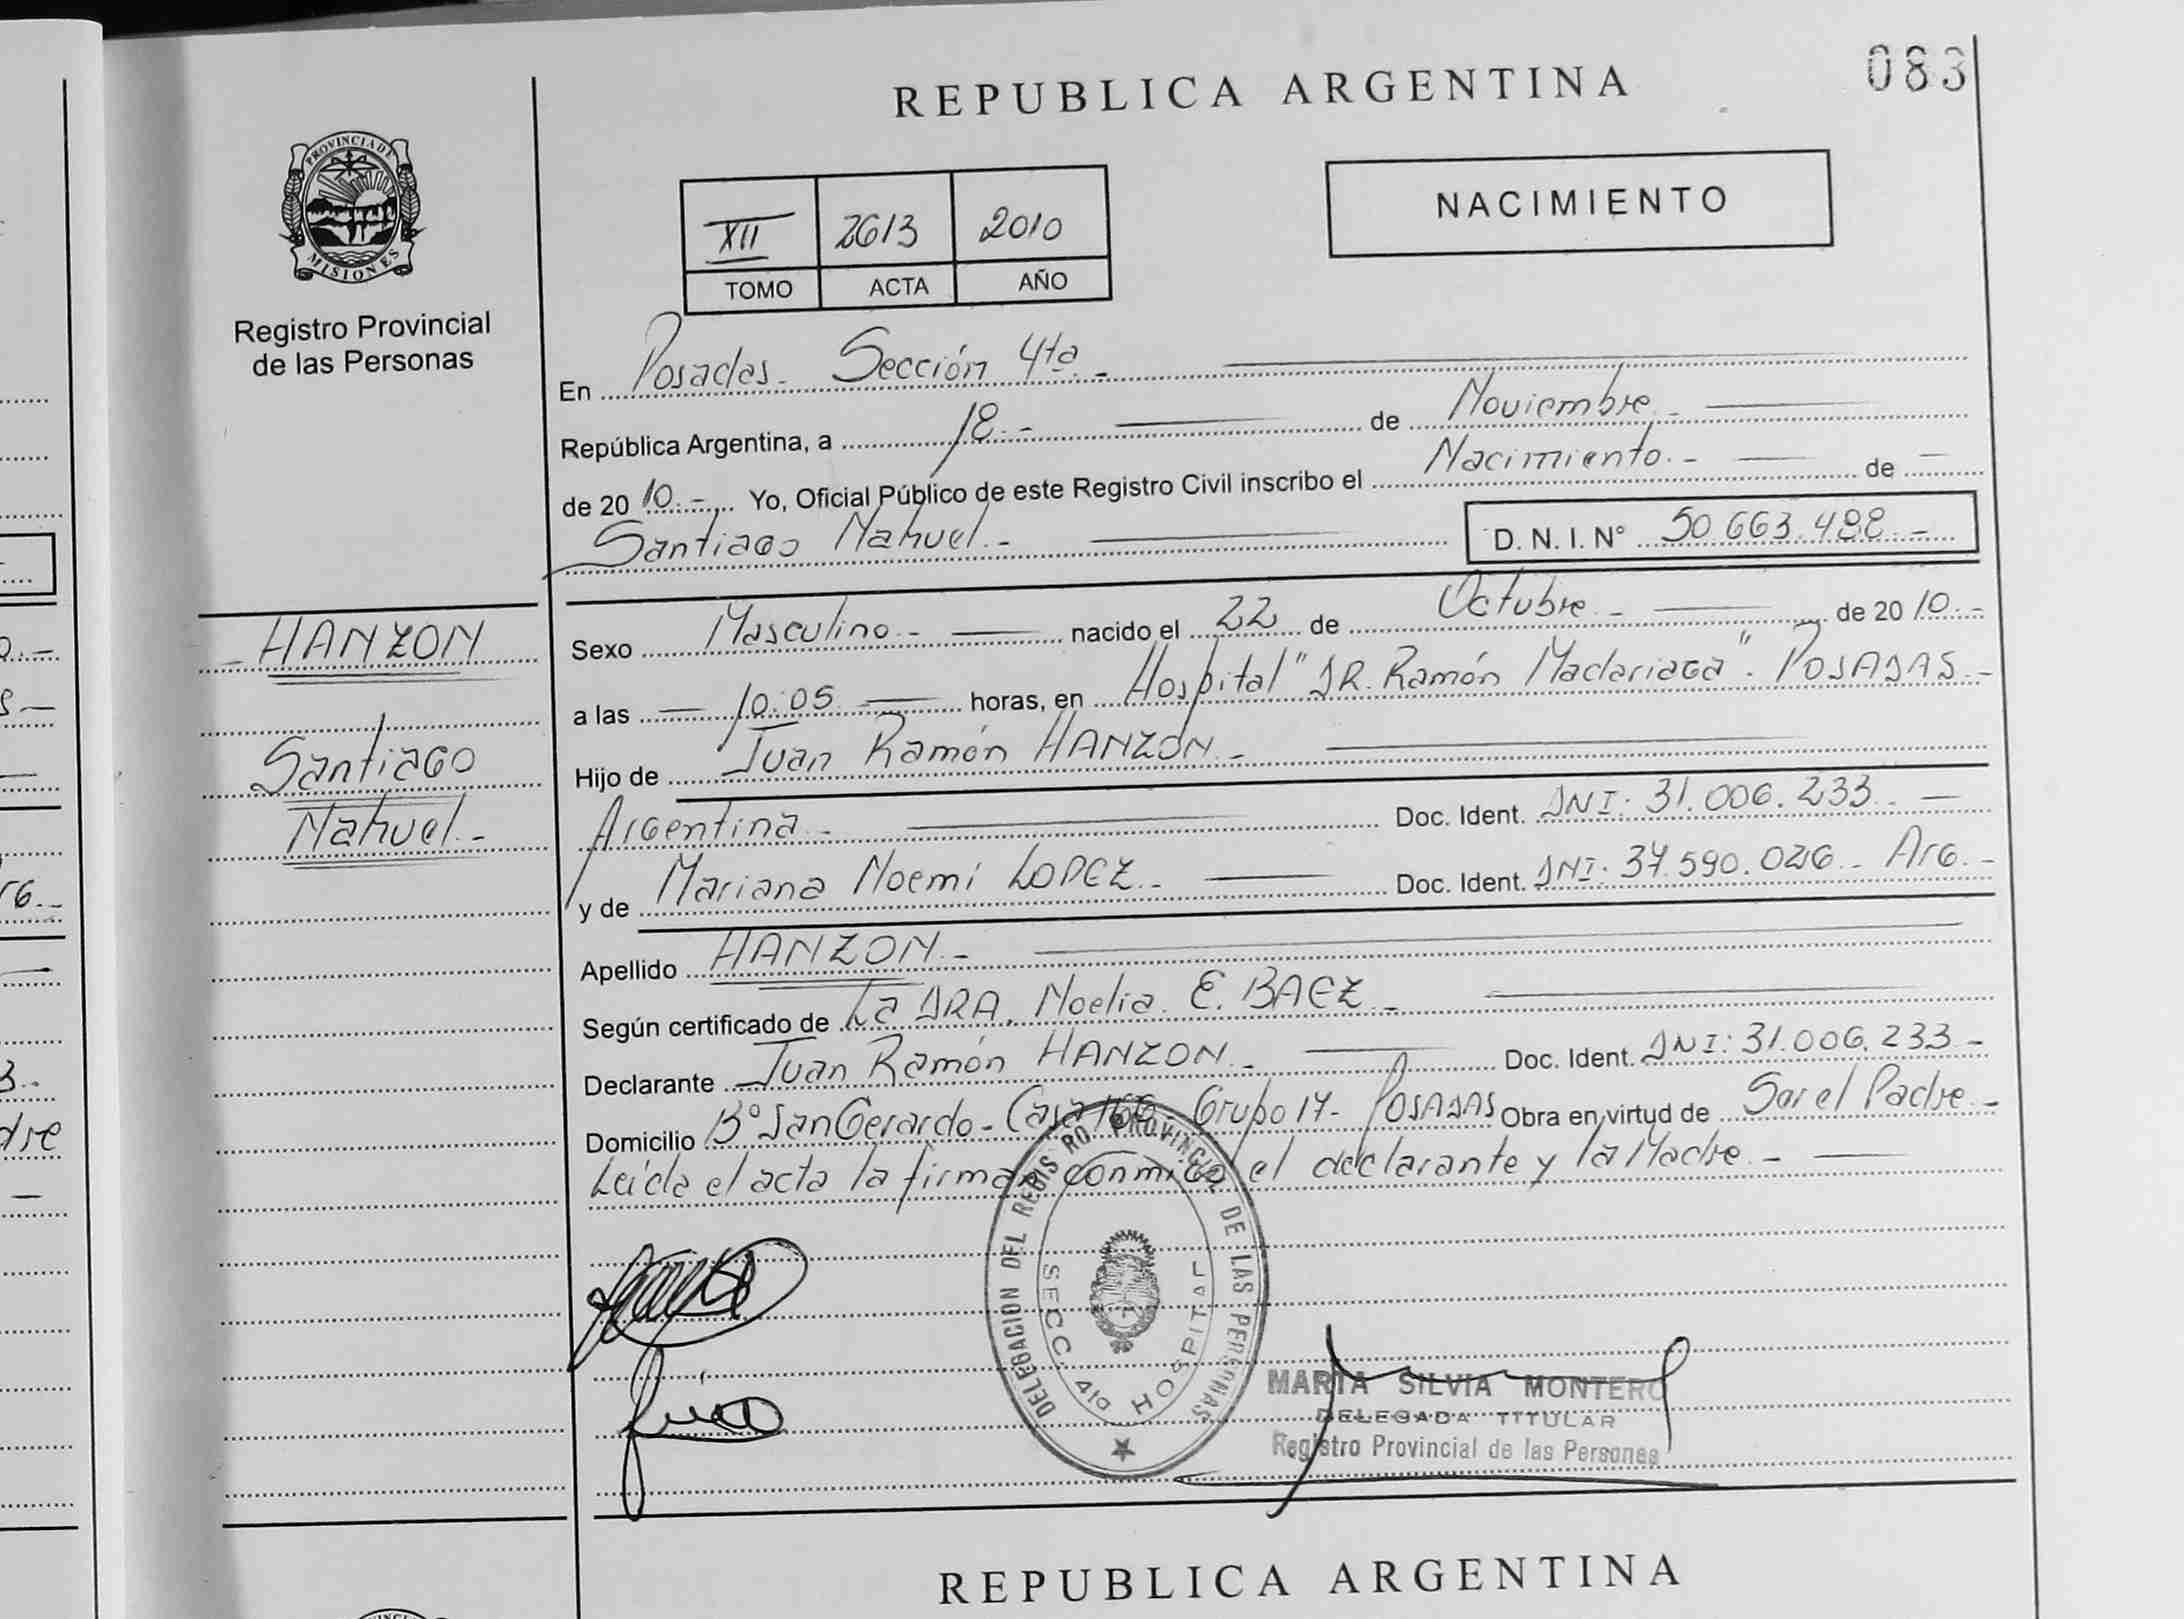 083
REPUBLICA ARGENTINA
PROVINCIA DE MISIONES
Registro Provincial
de las Personas
XII 2613 2010
TOMO ACTA AÑO
NACIMIENTO
En Posadas. Sección 4ta.-
República Argentina, a 18.- de Noviembre.-
de 2010.- Yo, Oficial Público de este Registro Civil inscribo el Nacimiento.- de -
Santiago Nahuel.- D. N. I. N° 50.663.488.-
HANZON
Santiago
Nahuel.-
Sexo Masculino.- nacido el 22 de Octubre.- de 2010.-
a las 10:05 horas, en Hospital "DR. Ramón Madariaga". POSADAS.-
Hijo de Juan Ramón HANZON.-
Argentina.- Doc. Ident. DNI: 31.006.233.-
y de Mariana Noemí LOPEZ.- Doc. Ident. DNI: 37.590.026.- Arg.-
Apellido HANZON.-
Según certificado de La DRA. Noelia. E. BAEZ.-
Declarante Juan Ramón HANZON.- Doc. Ident. DNI: 31.006.233.-
Domicilio B° San Gerardo - Casa - Grupo 17- POSADAS Obra en virtud de Ser el Padre.-
Leída el acta la firman conmigo el declarante y la Madre.-
DELEGACION DEL REGISTRO PROVINCIAL DE LAS PERSONAS
SECC. 4ta HOSPITAL
MARTA SILVIA MONTERO
DELEGADA TITULAR
Registro Provincial de las Personas
REPUBLICA ARGENTINA